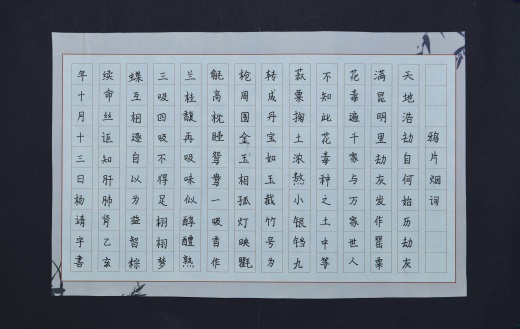 鸦片烟词
天地浩劫自何始历劫灰
满昆明里劫灰发作罂粟
花毒遍千家与万家世人
不知此花毒种之土中等
菽粟掬土浓熬小银铛九
转成丹宝如玉截竹号为
枪周围金玉相孤灯映氍
毹高枕睡鸳鸯一吸青作
兰桂馥再吸味似醇醴熟
三吸四吸不得足栩栩梦
蝶互相逐自以为益智粽
续命丝讵知肝肺肾乙亥
年十月十三日杨書